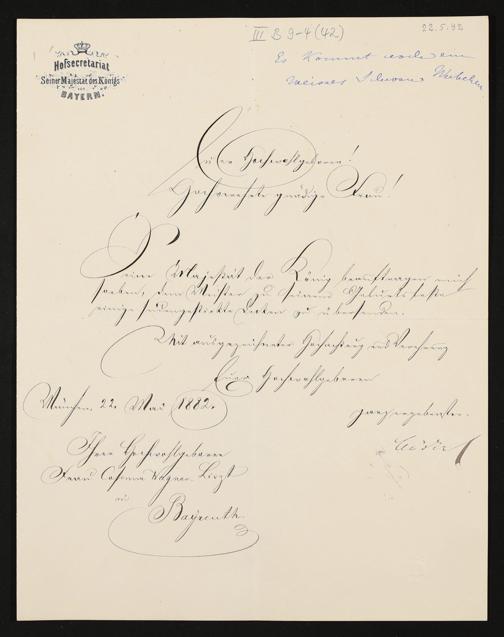 III B 9-4 (42)
22.5.82
Es kommt noch ein
weisses Schwan
Hofsecretariat
Seiner Majestät des Königs
VON
BAYERN.
Euer Hochwohlgeboren!
Hochverehrte gnädige Frau!
Seine Majestät der König beauftragen mich
soeben, dem Meister zu seinem Geburtsfeste
einige seidengestickte Decken zu übersenden.
Mit ausgezeichneter Hochachtung und Verehrung
Euer Hochwohlgeboren
München 22. Mai 1882.
ganz ergebenster
Ihrer Hochwohlgeboren
Frau Cosima Wagner-Liszt
in
Bayreuth